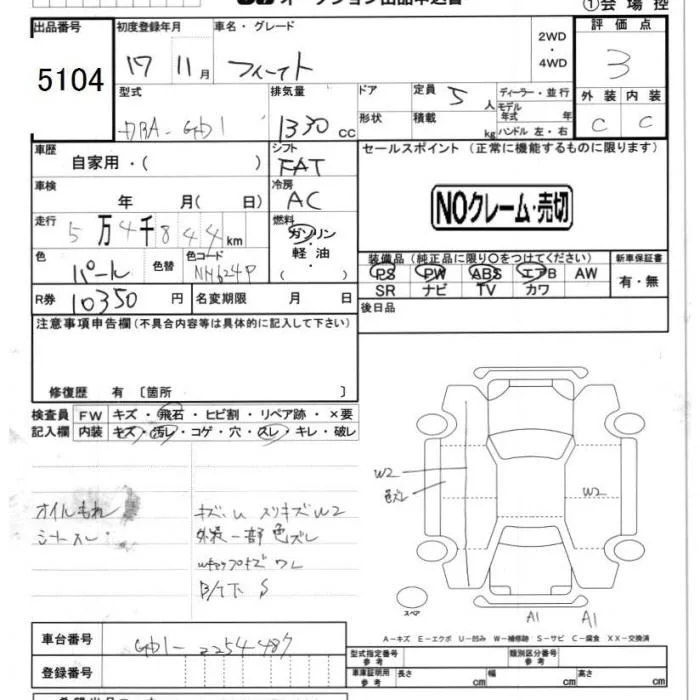 オークション出品申込書
①会場控
出品番号 初度登録年月 車名・グレード 2WD・4WD 評価点
5104 17 11月 フィット 3
型式 排気量 ドア 定員 5人 ディーラー・並行 外装 内装
DBA-GD1 1330cc 形状 積載 kg モデル年式 年 ハンドル 左・右 C C
車歴 シフト セールスポイント(正常に機能するものに限ります)
自家用・( ) FAT
車検 冷房
年 月( 日) AC
NOクレーム・売切
走行 燃料
5万4千844km ガソリン・軽油・( )
色 色替 色コード 装備品(純正品に限り○をつけてください) 新車保証書
パール NH624P PS PW ABS エアB AW 有・無
SR ナビ TV カワ
R券 10350円 名変期限 月 日 後日品
注意事項申告欄(不具合内容等は具体的に記入して下さい)
修復歴 有 〔箇所 〕
検査員 FW キズ・飛石・ヒビ割・リペア跡・×要
記入欄 内装 キズ・汚レ・コゲ・穴・スレ・キレ・破レ
オイルもれ キズ・U スリキズ W2
シートスレ 外装一部色ズレ
ワレ
B/T下 S
W2
色ズレ
W2
スペア
A1 A1
A-キズ E-エクボ U-凹み W-補修跡 S-サビ C-腐食 XX-交換済
車台番号 GD1-2254487
登録番号
型式指定番号 参考 類別区分番号 参考
車庫証明用 参考 長さ cm 幅 cm 高さ cm